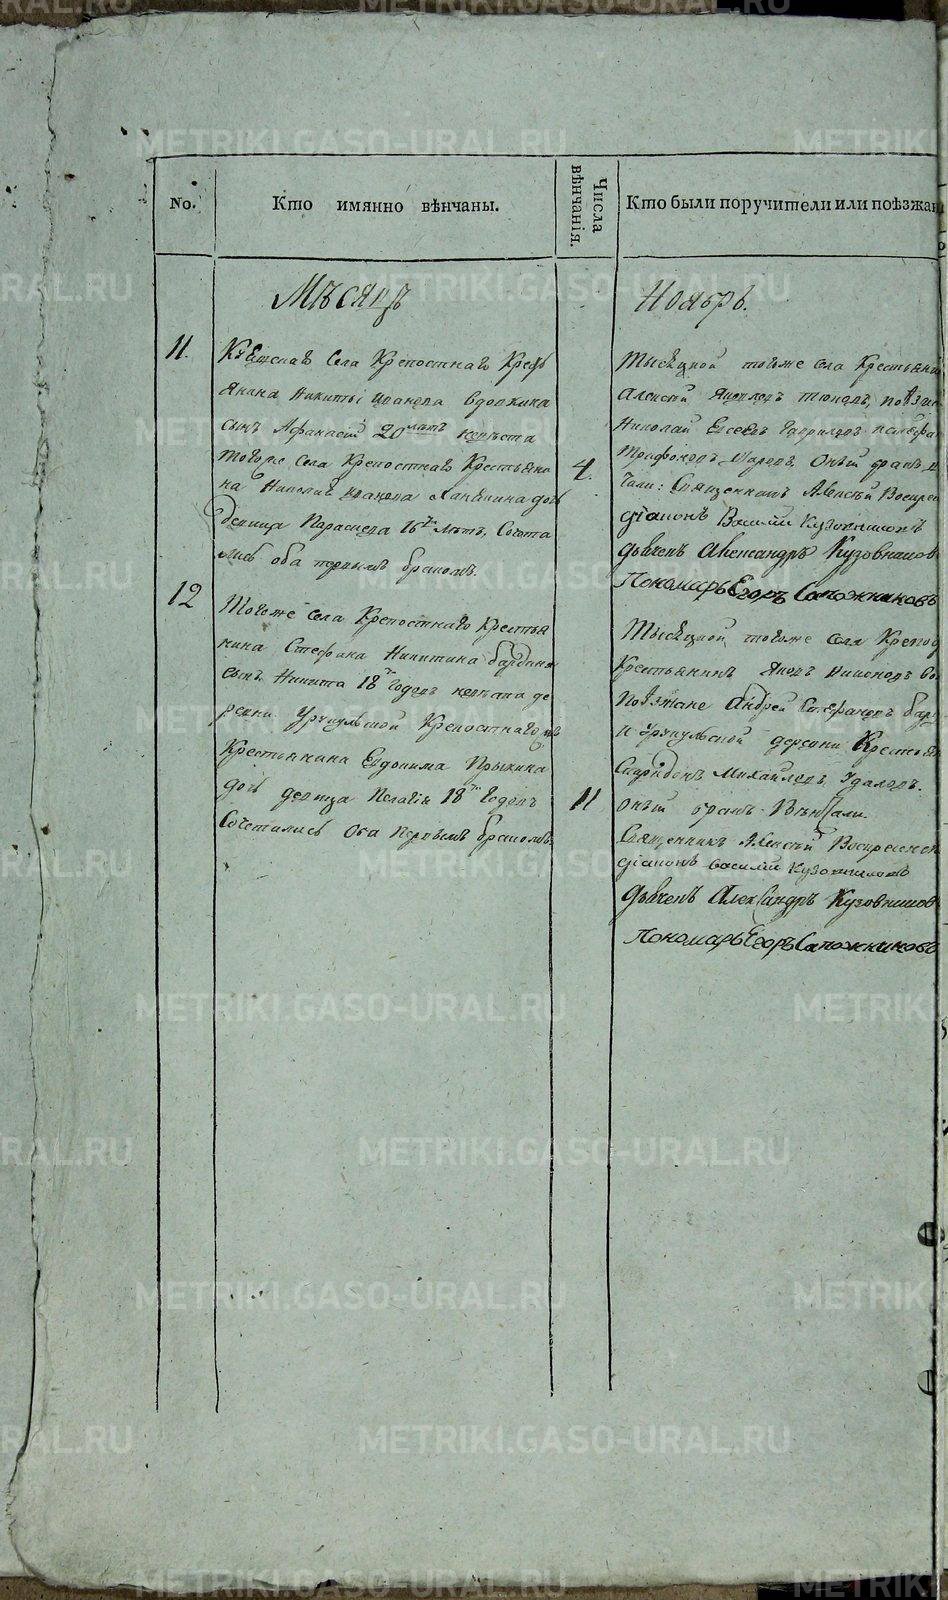 No.
Кто имянно вѣнчаны.
Числа вѣнчанія.
Кто были поручители или поѣзжан
Мѣсяцъ
Ноябрь.
11.
Села Крепостнаго Кресть
янина Никиты Иванова Вдовкина
сынъ Афанасій 20 лѣтъ невѣста
тогоже села Крепостнаго Крестьяни
на Николая Иванова дочь
девица Парасковья 16ти лѣтъ, Сочета
лись оба первымъ бракомъ.
4.
Тысяцкой тогоже села Крестьянин
Алексѣй поѣзжан
Николай
Трифоновъ Оный бракъ в
чали: Священникъ Алексѣй Воскресен
діаконъ Василій Кузовниковъ
дьячекъ Александръ Кузовников
Пономарь Егоръ Сапожниковъ
12
Тогоже села Крепостнаго Крестья
нина Стефана Никитина
сынъ Никита 18 годовъ невѣста де
ревни Крепостнаго
Крестьянина Евдокима
дочь девица Пелагія 18 годовъ
Сочетались Оба Первымъ бракомъ.
11
Тысяцкой тогоже села Крепос
Крестьянинъ Яковъ
Поѣзжане Андрей Стефановъ
и деревни Крестья
Спиридонъ Михайловъ Удаловъ.
Оный бракъ Венчали.
Священникъ Алексѣй Воскресенск
діаконъ Василій Кузовниковъ
дьячекъ Александръ Кузовников
Пономарь Егоръ Сапожниковъ
METRIKI.GASO-URAL.RU